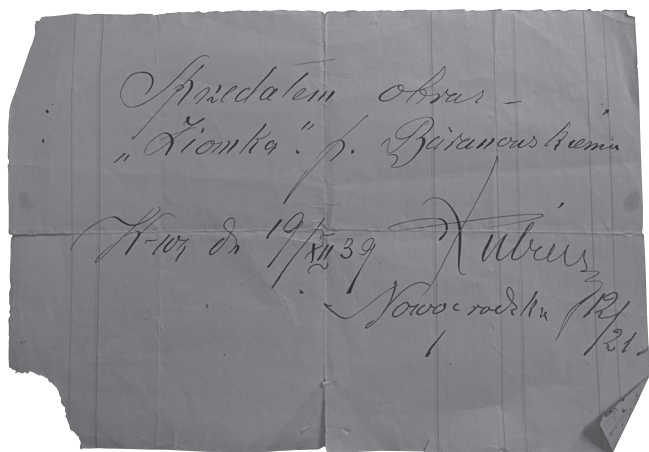 Sprzedałem obraz –
„Ziomka". p. Baranowskiemu
K-wa dn 19/XII 39
Nowogrodzka 12/21.